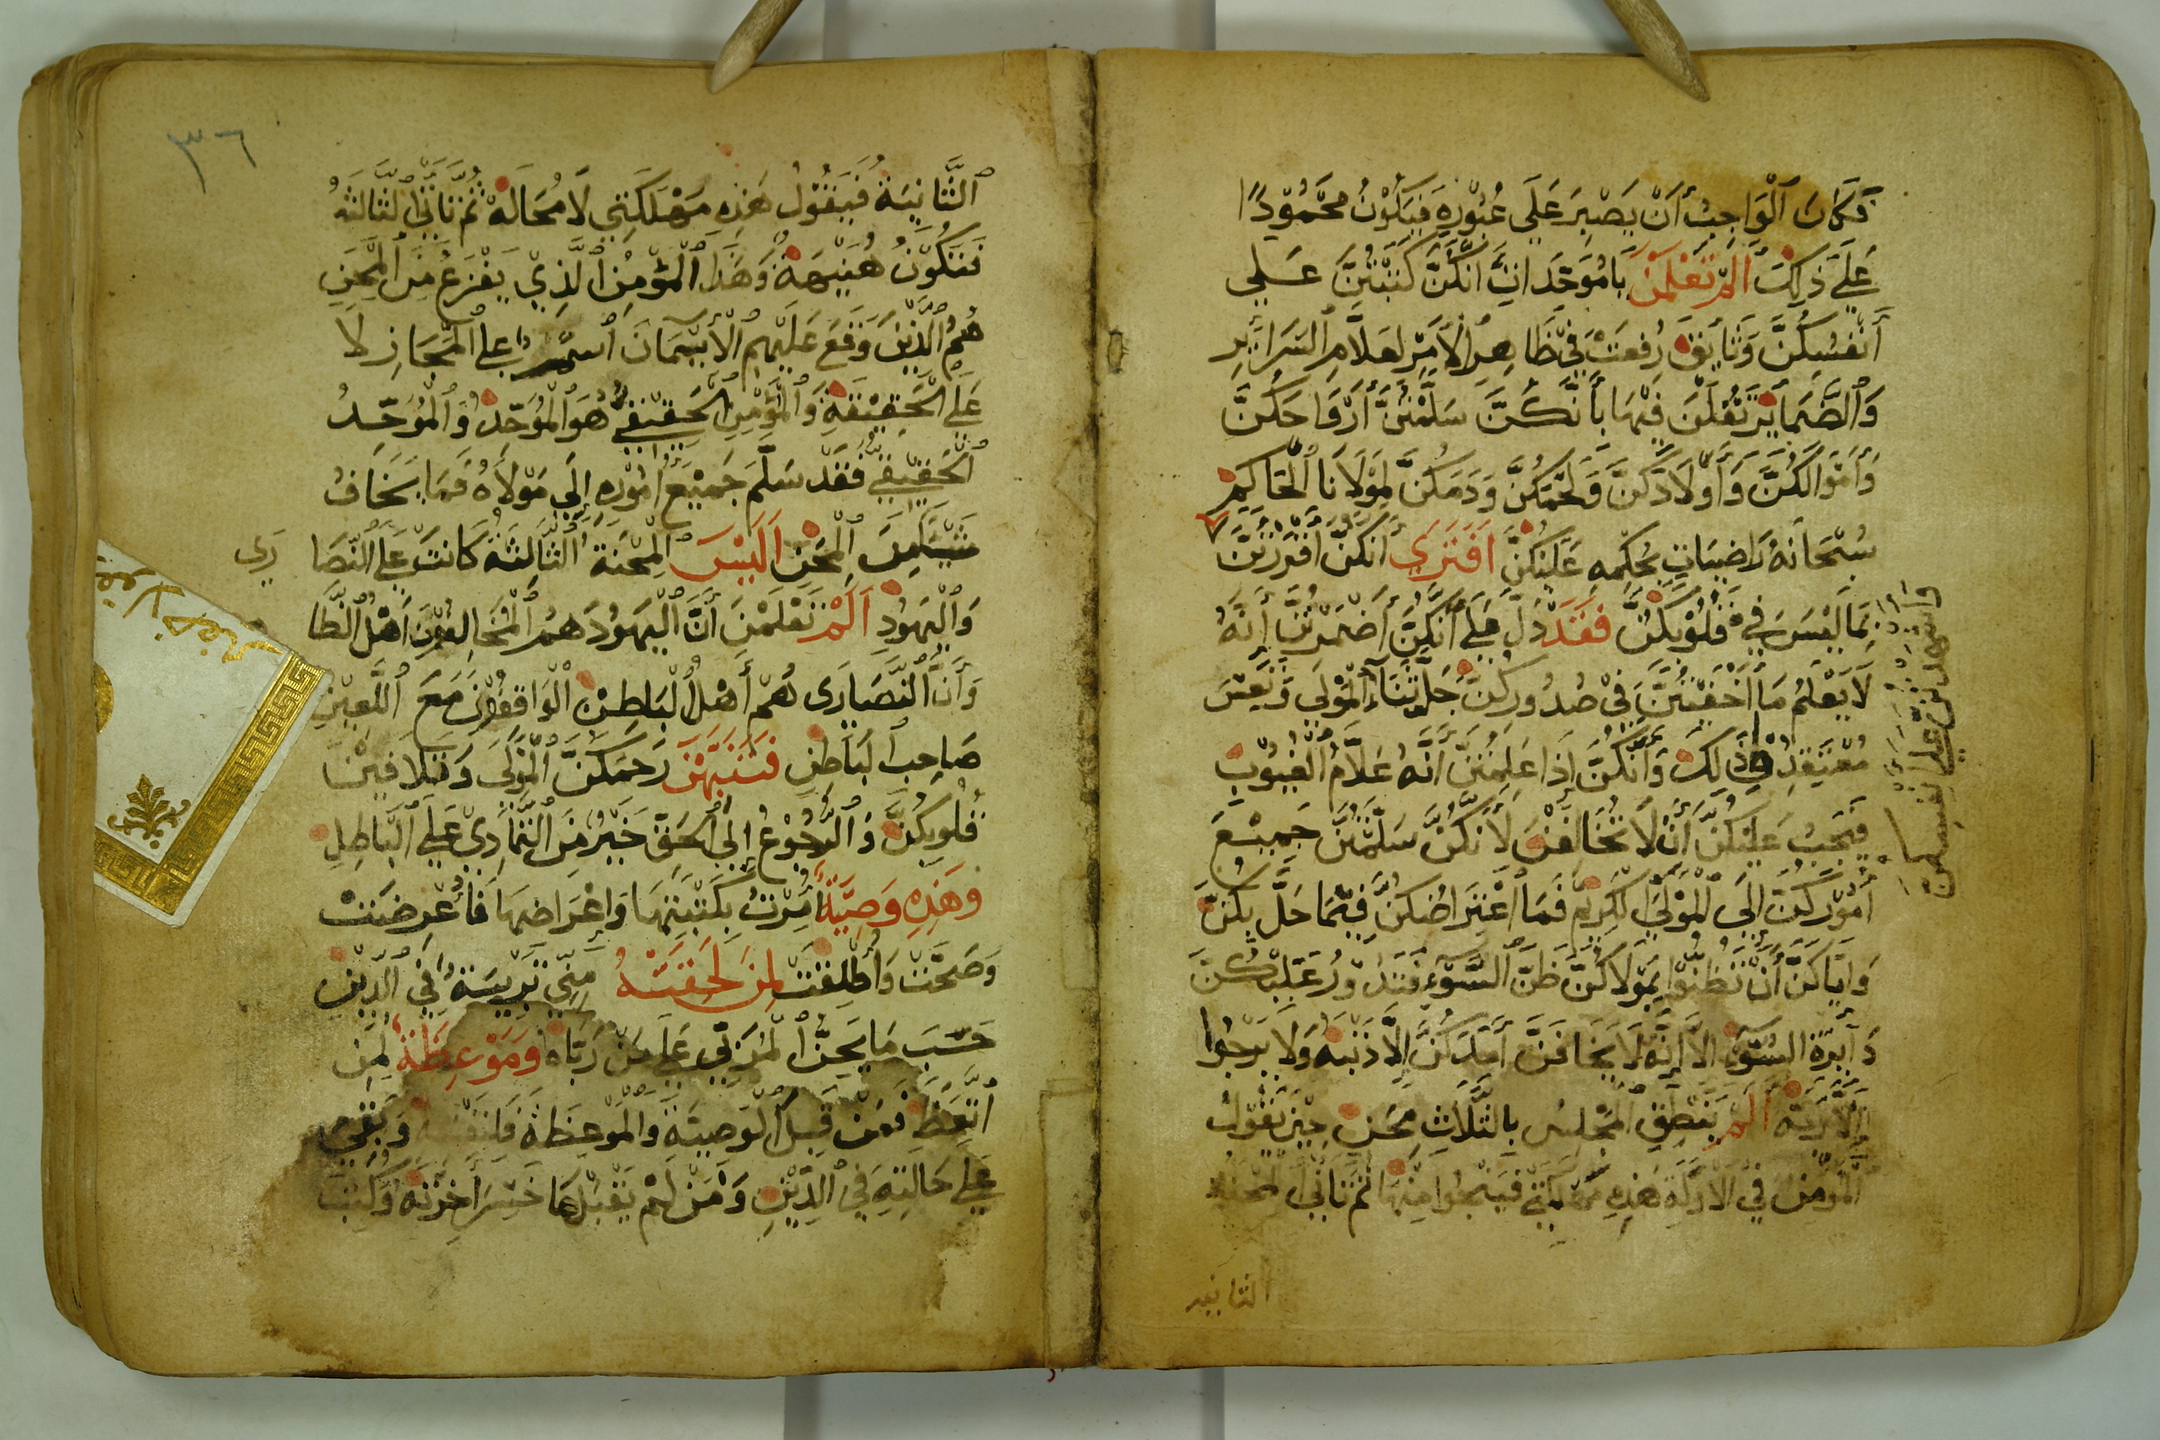 فَكَانَ ٱلْوَاجِبُ أَنْ يَصْبِرَ عَلَى عُبُورِهِ فَيَكُوْنُ مَحْمُوْدًا
عَلَى ذَلِكَ أَلَمْ تَعْلَمْنَ يَا مُوَحِّدَاتِ أَنَّكُنَّ كَتَبْتُنَّ عَلَى
أَنْفُسِكُنَّ وَثَايِقَ رُفِعَتْ فِيْ ظَاهِرِ ٱلْأَمْرِ لِعَلَّامِ ٱلسَّرَائِرِ
وَٱلضَّمَايِرِ تَقُلْنَ فِيْهَا بِأَنَّكُنَّ سَلَّمْتُنَّ أَرْوَاحَكُنَّ
وَأَمْوَالَكُنَّ وَأَوْلَادَكُنَّ وَلَحْمَكُنَّ وَدَمَكُنَّ لِمَوْلَانَا ٱلْحَاكِمِ
سُبْحَانَهُ رَاضِيَاتٍ بِحُكْمِهِ عَلَيْكُنَّ أَفَتَرَى أَنَّكُنَّ أَقْرَرْتُنَّ
بِمَا لَيْسَ فِي قُلُوْبِكُنَّ فَقَدْ دَلَّ عَلَى أَنَّكُنَّ أَضْمَرْتُنَّ أَنَّهُ
لَا يَعْلَمُ مَا أَخْفَيْتُنَّ فِيْ صُدُورِكُنَّ جَلَّ ثَنَاءُ ٱلْمَوْلَى وَتَعِسَ
مُعْتَقِدُ ذَلِكَ وَأَنَّكُنَّ إِذَا عَلِمْتُنَّ أَنَّهُ عَلَّامُ ٱلْغُيُوْبِ
فَيَجِبُ عَلَيْكُنَّ أَنْ لَا تُخَالِفْنَ لِأَنَّكُنَّ سَلَّمْتُنَّ جَمِيْعَ
أُمُوْرِكُنَّ إِلَى ٱلْمَوْلَى ٱلْكَرِيْمِ فَمَا ٱعْتِرَاضُكُنَّ فِيْمَا حَلَّ بِكُنَّ
وَإِيَّاكُنَّ أَنْ تَظُنُّوا بِمَوْلَاكُنَّ ظَنَّ ٱلسَّوْءِ فَتَدُوْرُ عَلَيْكُنَّ
دَآئِرَةُ ٱلسَّوْءِ أَلَا إِنَّهُ لَا يَخَافَنَّ أَحَدَكُنَّ إِلَّا ذَنْبَهُ وَلَا يَرْجُوا
إِلَّا رَبَّهُ أَلَمْ يَنْطِقِ ٱلْمَجْلِسُ بِٱلثَّلَاثِ مِحَنٍ حِيْنَ يَقُوْلُ
ٱلْمُؤْمِنُ فِي ٱلْأَوَّلَةِ هَذِهِ مَهْلَكَتِيْ فَيَنْجُوا مِنْهَا ثُمَّ تَأْتِي ٱلْمِحْنَةُ
الثانيه
ٱلثَّانِيَةُ فَيَقُوْلُ هَذِهِ مَهْلَكَتِي لَا مُحَالَةَ ثُمَّ تَأْتِي ٱلثَّالِثَةُ
فَتَكُوْنُ هُنَيْهَةً وَهَذَا ٱلْمُؤْمِنُ ٱلَّذِيْ يَفْزَعُ مِنَ ٱلْمِحَنِ
هُمُ ٱلَّذِيْنَ وَقَعَ عَلَيْهِمِ ٱلْأَيْمَانَ ٱسْمًا عَلَى ٱلْمَجَازِ لَا
عَلَى ٱلْحَقِيْقَةِ وَٱلْمُؤْمِنُ ٱلْحَقِيْقِيُّ هُوَ ٱلْمُوَحِّدُ وَٱلْمُوَحِّدُ
ٱلْحَقِيْقِيُّ فَقَدْ سَلَّمَ جَمِيْعَ أُمُوْرِهِ إِلَى مَوْلَاهُ فَمَا يَخَافُ
مِنَ ٱلْمِحَنِ أَلَيْسَ ٱلْمِحْنَةُ ٱلثَّالِثَةُ كَانَتْ عَلَى ٱلنَّصَا رَى
وَٱلْيَهُوْدِ أَلَمْ تَعْلَمْنَ أَنَّ ٱلْيَهُوْدَ هُمُ ٱلْمُخَالِفُوْنَ أَهْلُ ٱلظَّا
وَأَنَّ ٱلنَّصَارَى هُمْ أَهْلُ ٱلْبَاطِنِ ٱلْوَاقِفُوْنَ مَعَ ٱللَّعِيْنِ
صَاحِبِ ٱلْبَاطِنِ فَتَنَبَّهْنَ رَحِمَكُنَّ ٱلْمَوْلَى وَتَلَافَيْنَ
قُلُوبَكُنَّ وَٱلرُّجُوْعُ إِلَى ٱلْحَقِّ خَيْرٌ مِنَ ٱلتَّمَادِيْ عَلَى ٱلْبَاطِلِ
وَهَذِهِ وَصِيَّةٌ أَمَرْتُ بِكَتْبِتِهَا وَإِعْرَاضِهَا فَأُعْرِضَتْ
وَصَحَّتْ وَأُطْلِقَتْ لِمَنْ لَحِقَتْهُ مِنِّي تَرْبِيَةٌ فِي ٱلدِّيْنِ
حَسَبَ مَا يَحِنُّ ٱلْمُرَبِّي عَلَى مَنْ رَبَّاهُ وَمَوْعِظَةٌ لِمَنِ
ٱتَّعَظَ فَمَنْ قَبِلَ ٱلْوَصِيَّةَ وَٱلْمَوْعِظَةَ فَلِنَفْسِهِ وَبَقِيَ
عَلَى حَالَتِهِ فِي ٱلدِّيْنِ وَمَنْ لَمْ يَقْبَلْهَا خَسِرَ آخِرَتَهُ وَكُتِبَ
٣٦